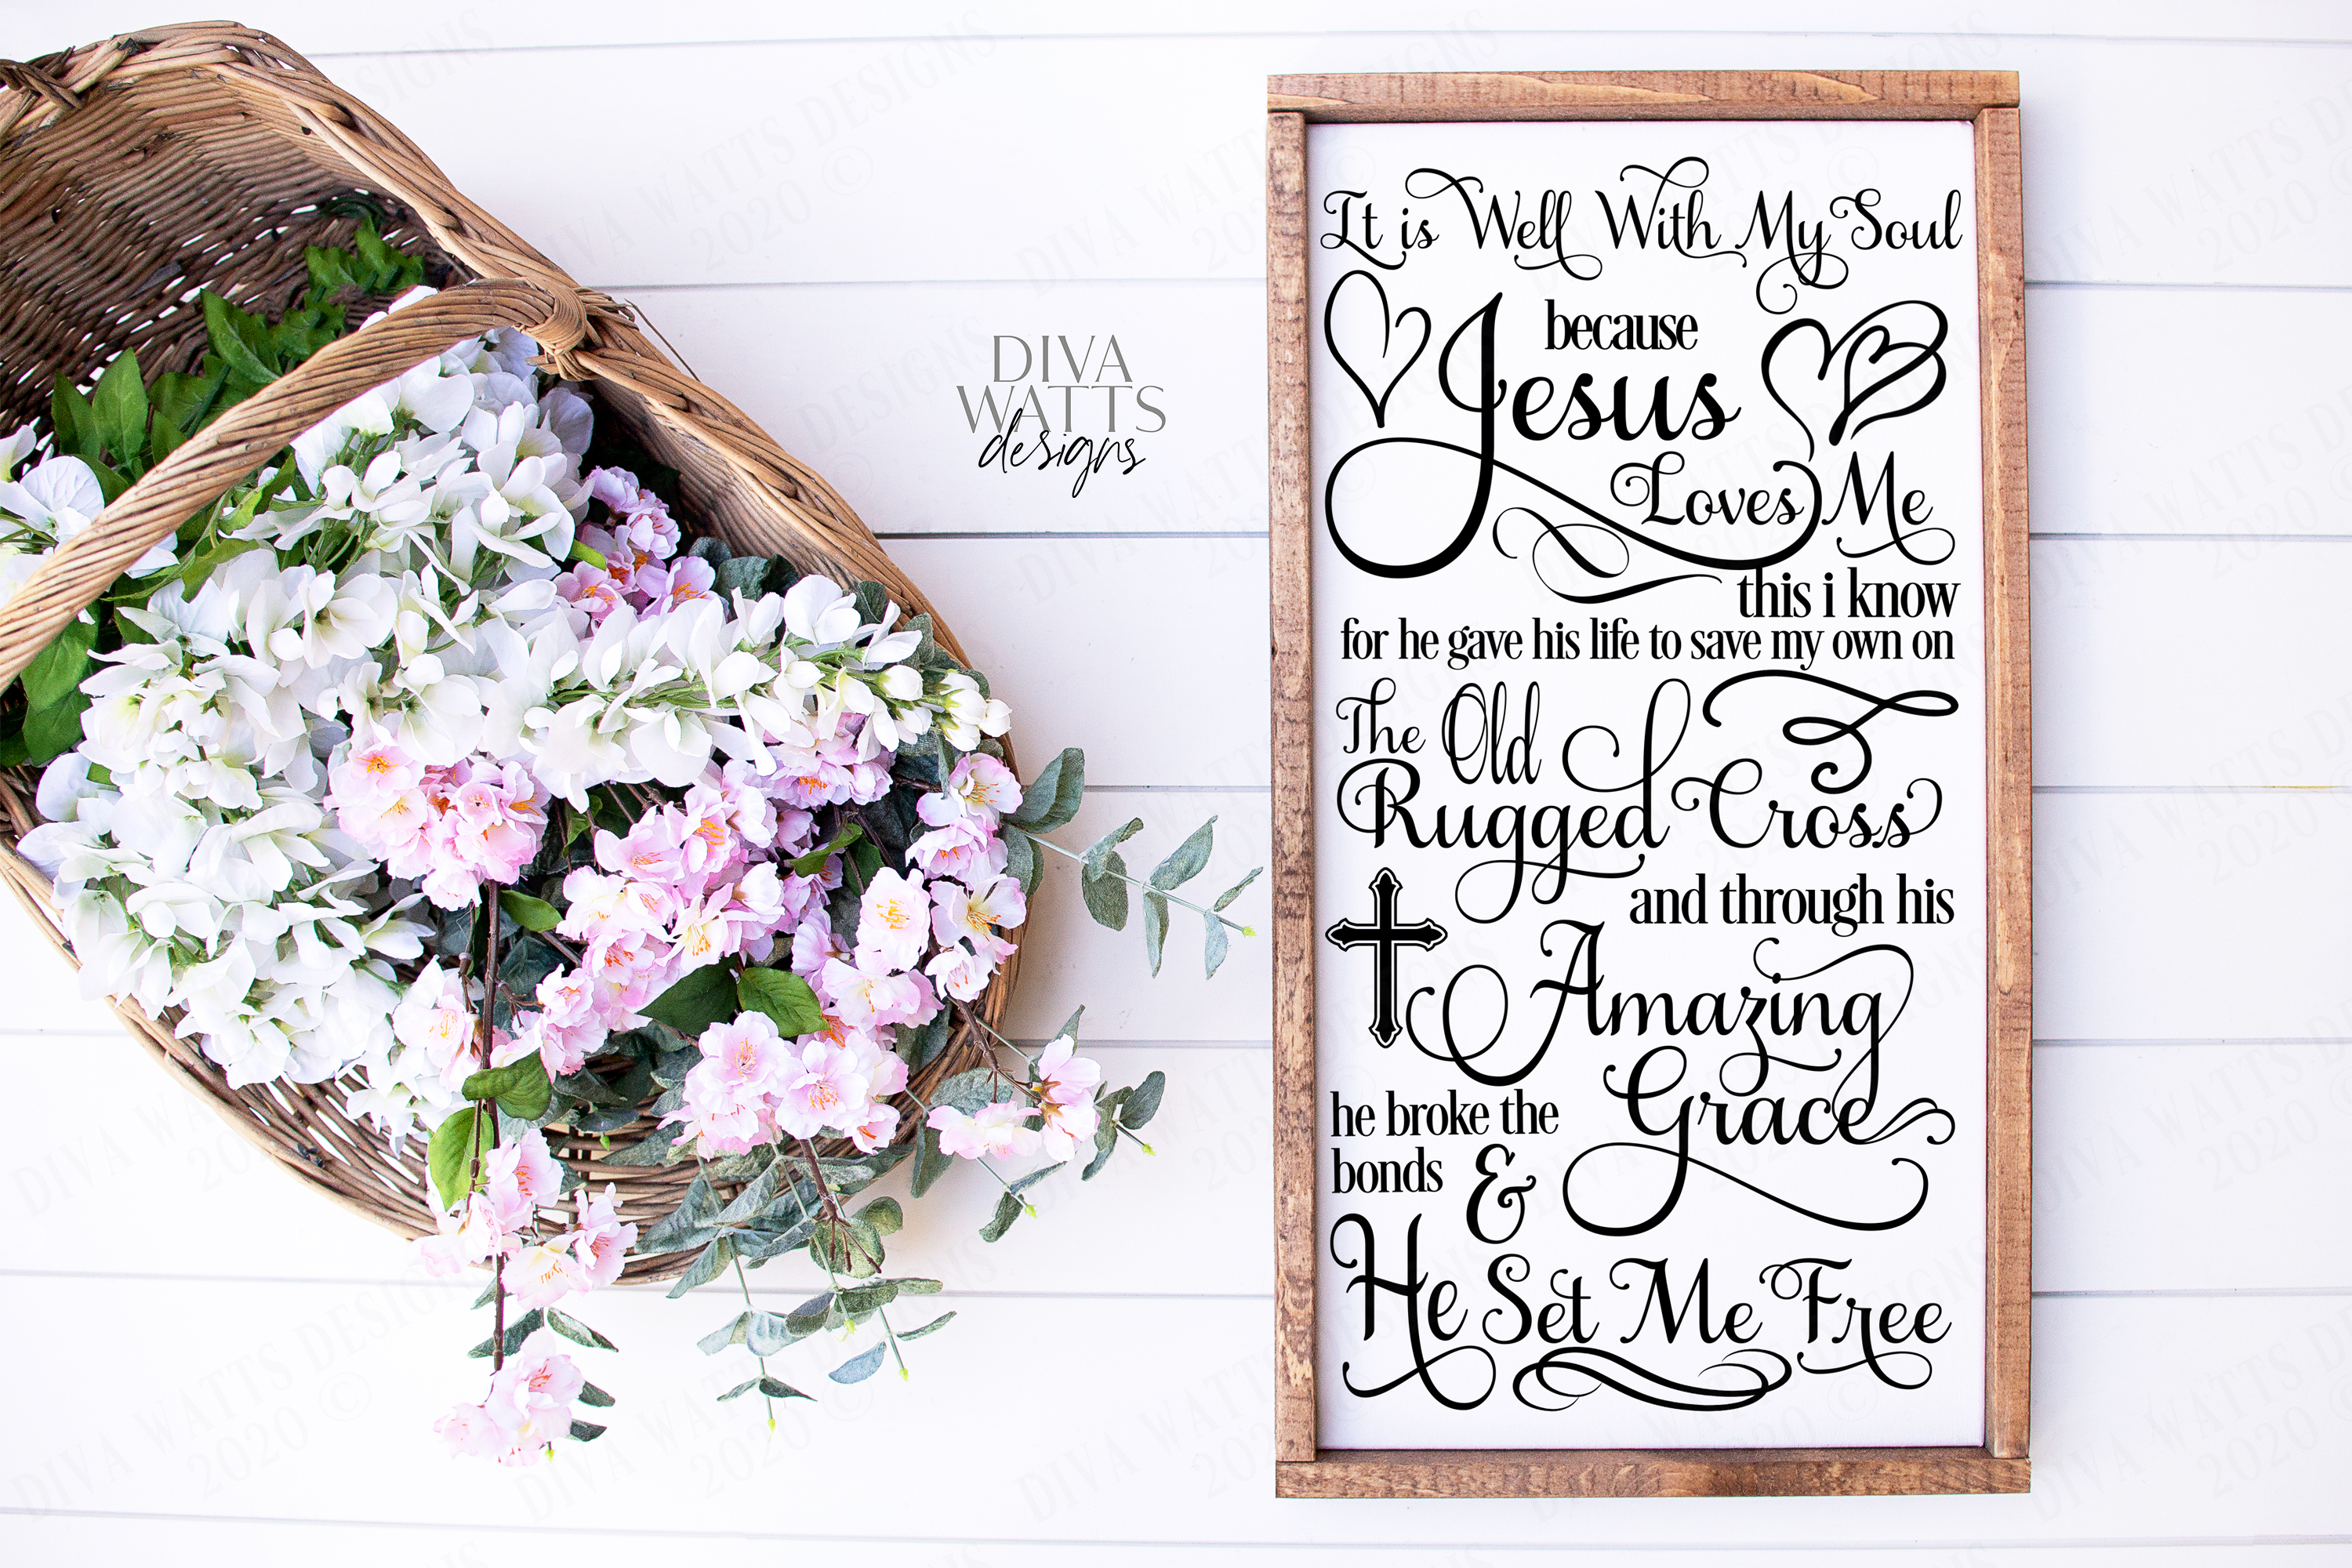 DIVA
WATTS
designs
It is Well With My Soul
because
Jesus
Loves Me
this i know
for he gave his life to save my own on
The Old
Rugged Cross
and through his
Amazing
Grace
he broke the
bonds &
He Set Me Free
DIVA WATTS DESIGNS
2020 ©